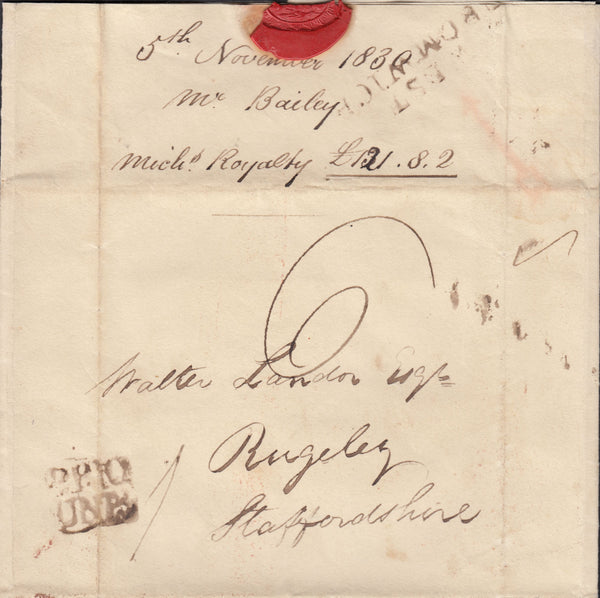 5th November 1830
Mr. Bailey
Michs Royalty £121.8.2
WEST
BROMWICH
6
Walter Landor Esqr
Rugeley
Staffordshire